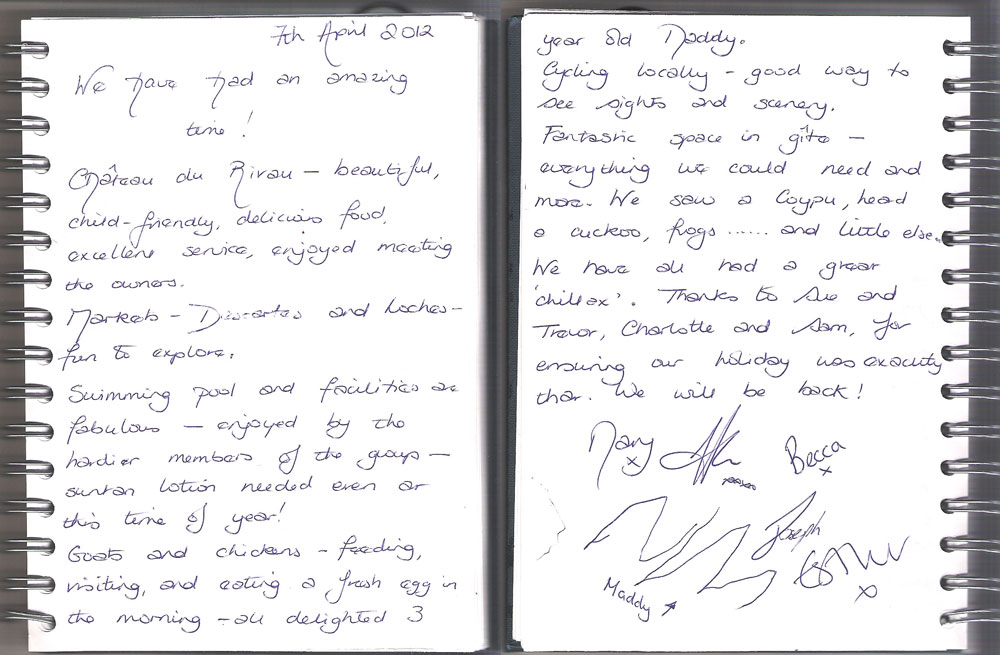 7th April 2012
We have had an amazing
time!
Château du Rivau - beautiful,
child-friendly, delicious food,
excellent service, enjoyed meeting
the owners.
Markets - Descartes and Loches -
fun to explore.
Swimming pool and facilities are
fabulous - enjoyed by the
hardier members of the group -
suntan lotion needed even at
this time of year!
Goats and chickens - feeding,
visiting, and eating a fresh egg in
the morning - all delighted 3
year old Maddy.
Cycling locally - good way to
see sights and scenery.
Fantastic space in gîte -
everything we could need and
more. We saw a Coypu, heard
a cuckoo, frogs ...... and little else.
We have all had a great
'chillax'. Thanks to Sue and
Trevor, Charlotte and Sam, for
ensuring our holiday was exactly
that. We will be back!
Mary x
Becca x
Joseph
Esther x
Maddy